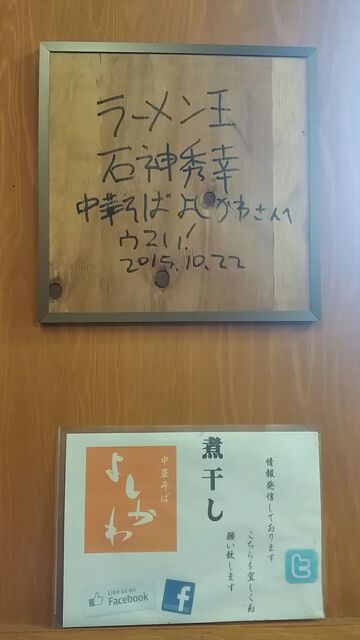 ラーメン王
石神秀幸
中華そばよしかわさんへ
ウマい!
2015.10.22
情報発信しております
こちらも宜しくお
願い致します
煮干し
中華そば
よしかわ
Like us on
Facebook
f
t